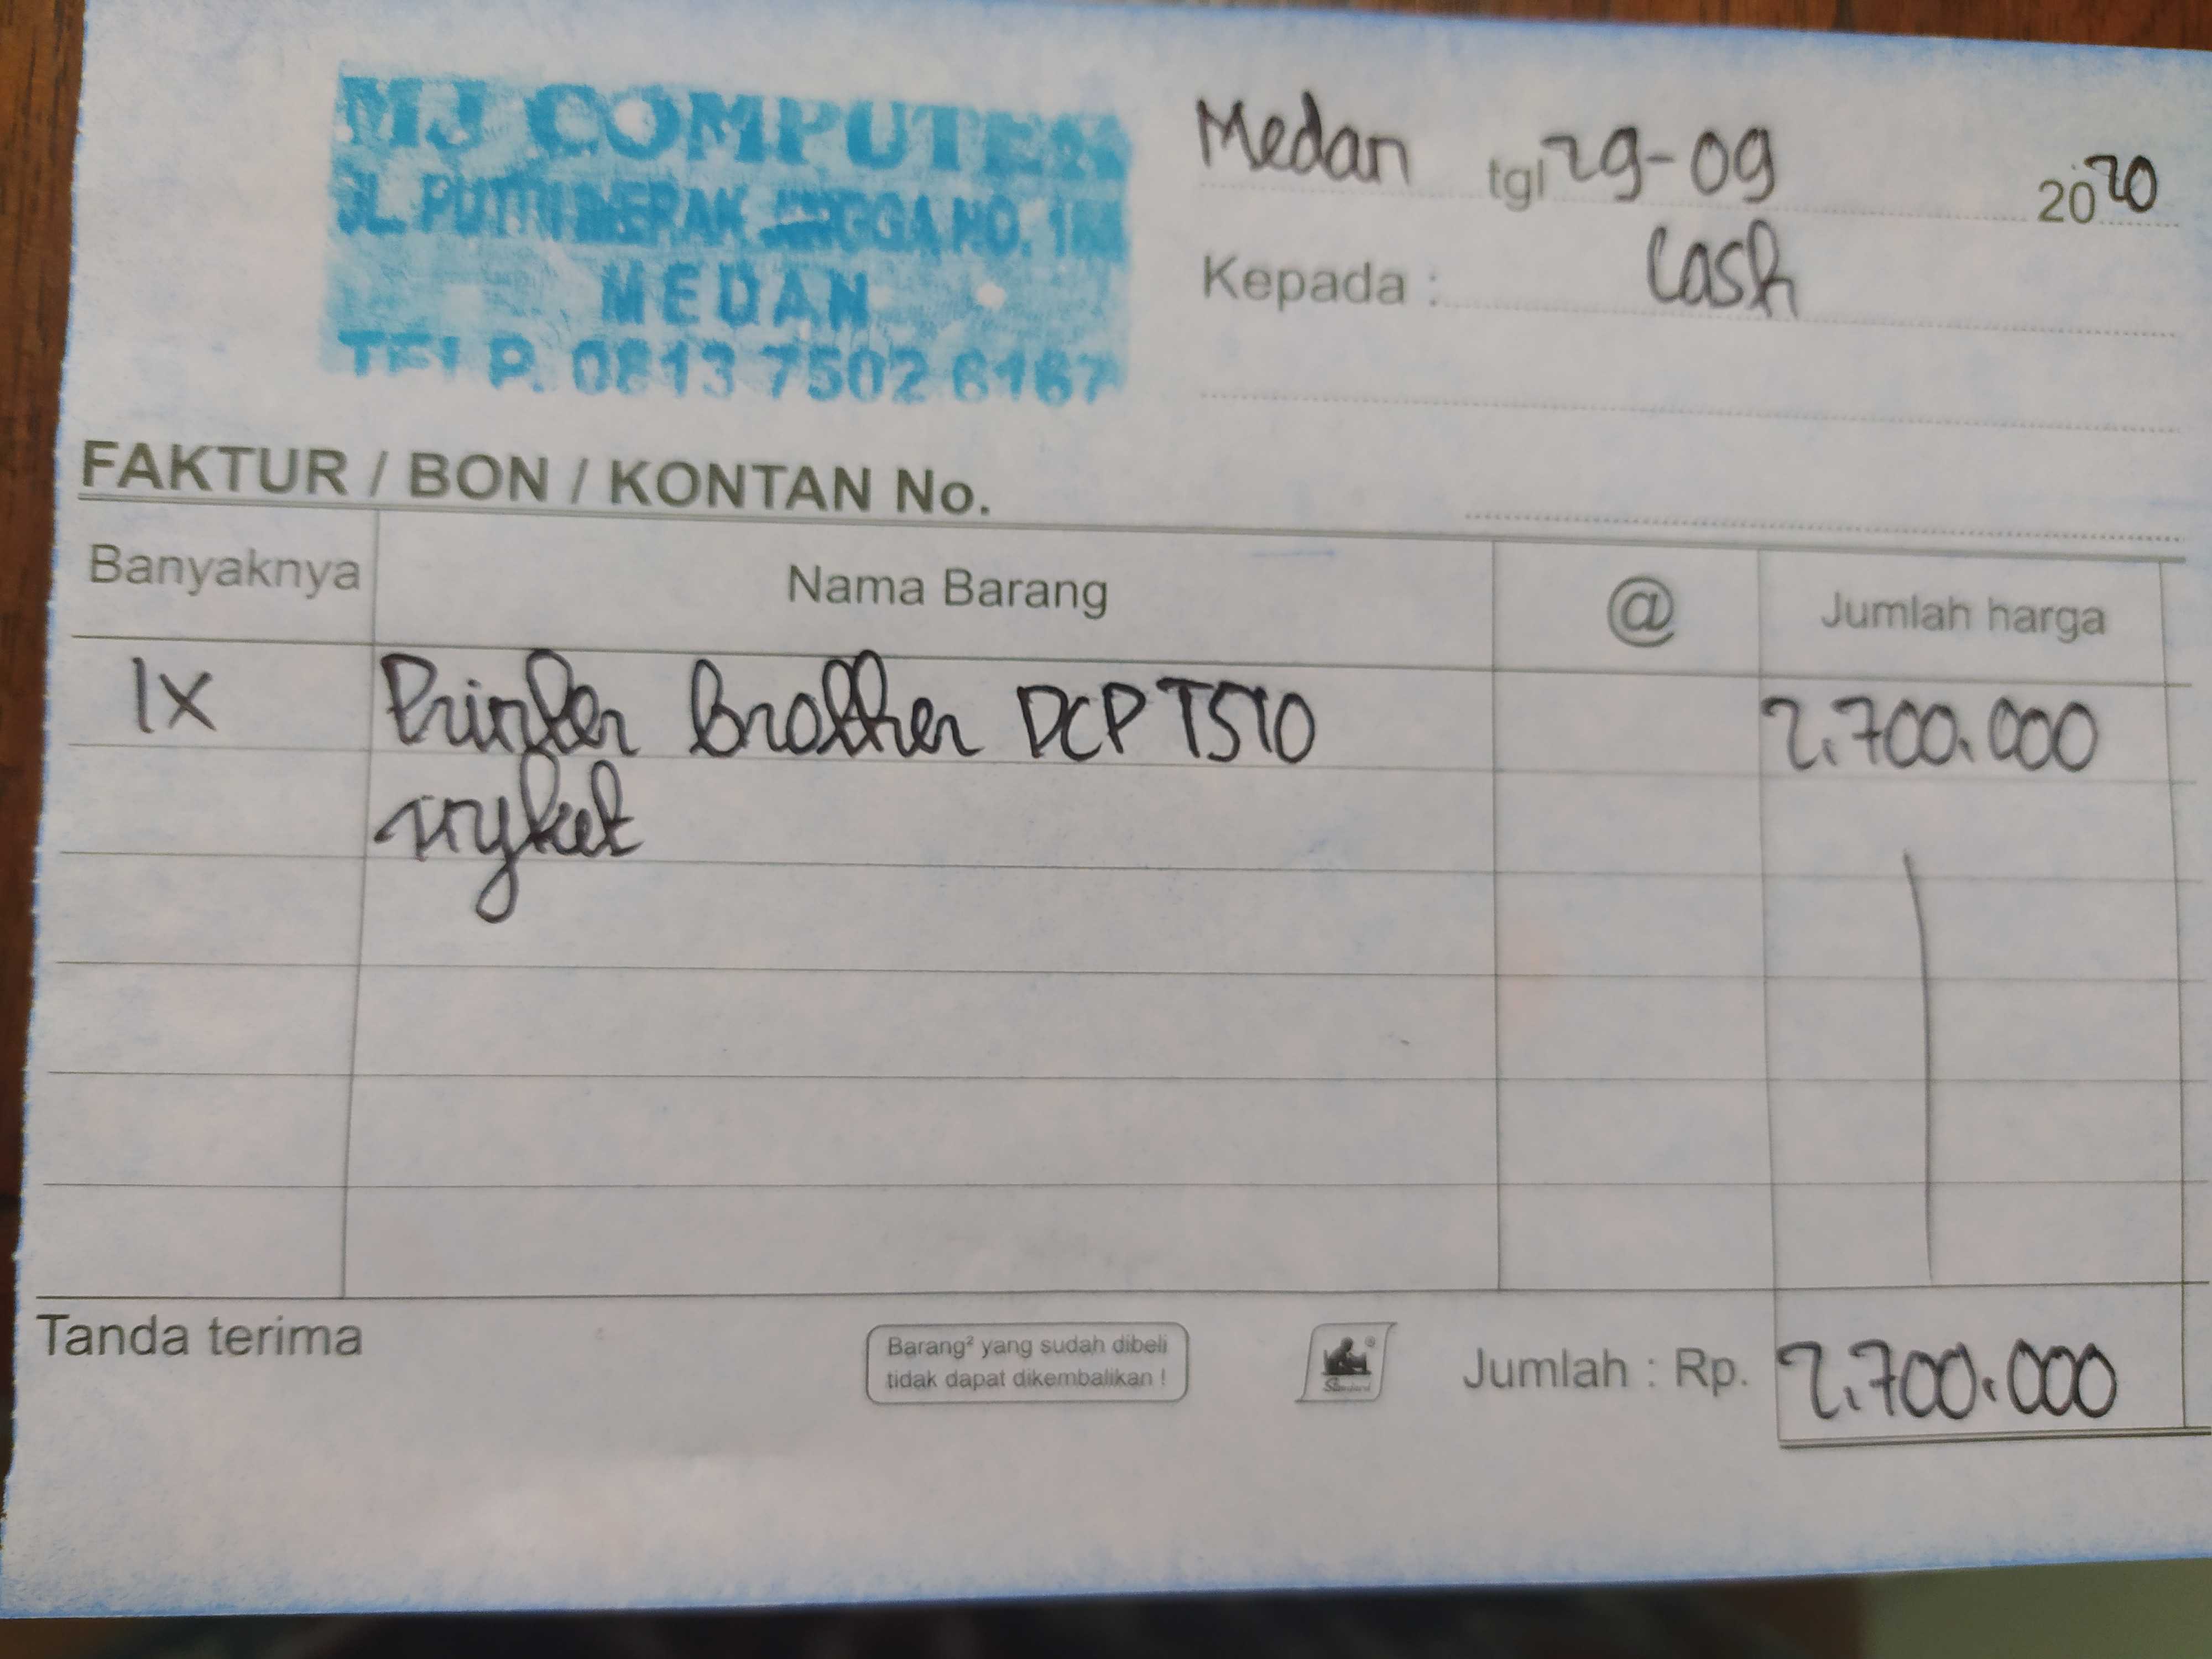 MJ COMPUTER
JL. PUTRI MERAK JINGGA NO.
MEDAN
TELP. 0813 7502 6167
Medan tgl 29-09 2020
Kepada : Cash
FAKTUR / BON / KONTAN No.
Banyaknya Nama Barang @ Jumlah harga
1X Printer Brother DCP T510 2.700.000
Jumlah : Rp. 2.700.000
Tanda terima
Barang² yang sudah dibeli
tidak dapat dikembalikan !